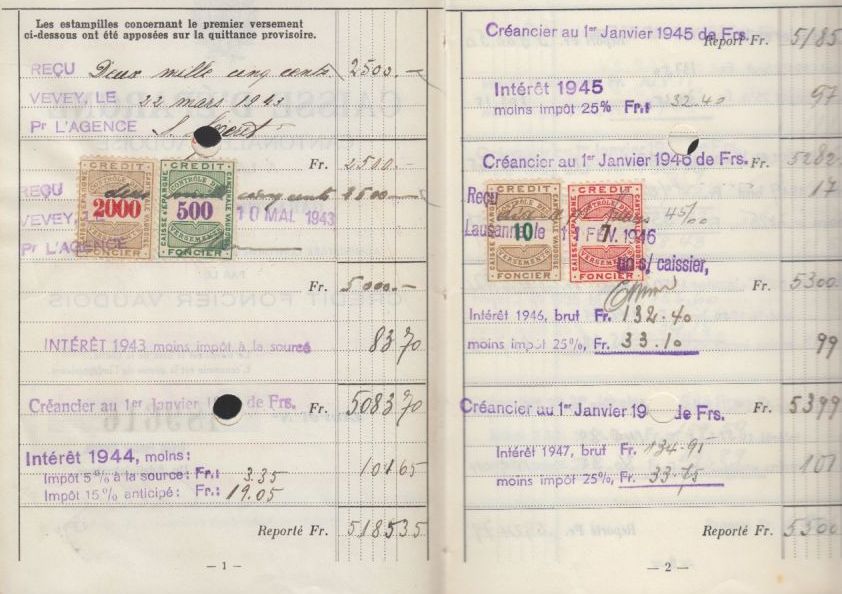 Les estampilles concernant le premier versement
ci-dessous ont été apposées sur la quittance provisoire.
REÇU Deux mille cinq cents 2500.—
VEVEY, LE 22 mars 1943
Pr L'AGENCE
Fr. 2500.—
CREDIT FONCIER
CAISSE D'EPARGNE
CANTONALE VAUDOISE
CONTRÔLE DES VERSEMENTS
2000
CREDIT FONCIER
CAISSE D'EPARGNE
CANTONALE VAUDOISE
CONTRÔLE DES VERSEMENTS
500
REÇU deux cinq cents 2500.—
VEVEY, 10 MAI 1943
Pr L'AGENCE
Fr. 5000.—
INTÉRÊT 1943 moins impôt à la source 83 70
Créancier au 1er Janvier de Frs. Fr. 5083 70
Intérêt 1944, moins:
Impôt 5% à la source: Fr.: 3.35 101 65
Impôt 15% anticipé: Fr.: 19.05
Reporté Fr. 5185 35
— 1 —
Créancier au 1er Janvier 1945 de Frs.
Report Fr. 5185
Intérêt 1945
moins impôt 25% Fr. 32.40 97
Créancier au 1er Janvier 1946 de Frs. 5282
17
CREDIT FONCIER
CAISSE D'EPARGNE
CANTONALE VAUDOISE
CONTRÔLE DES VERSEMENTS
10
CREDIT FONCIER
CAISSE D'EPARGNE
CANTONALE VAUDOISE
CONTRÔLE DES VERSEMENTS
7
Reçu
Lausanne le FEV. 1946
un s/ caissier,
Fr. 5300
Intérêt 1946, brut Fr. 132.40
moins impôt 25%, Fr. 33.10 99
Créancier au 1er Janvier 19 de Frs. Fr. 5399
Intérêt 1947, brut Fr. 134.95
moins impôt 25%, Fr. 33.75 101
Reporté Fr. 5500
— 2 —